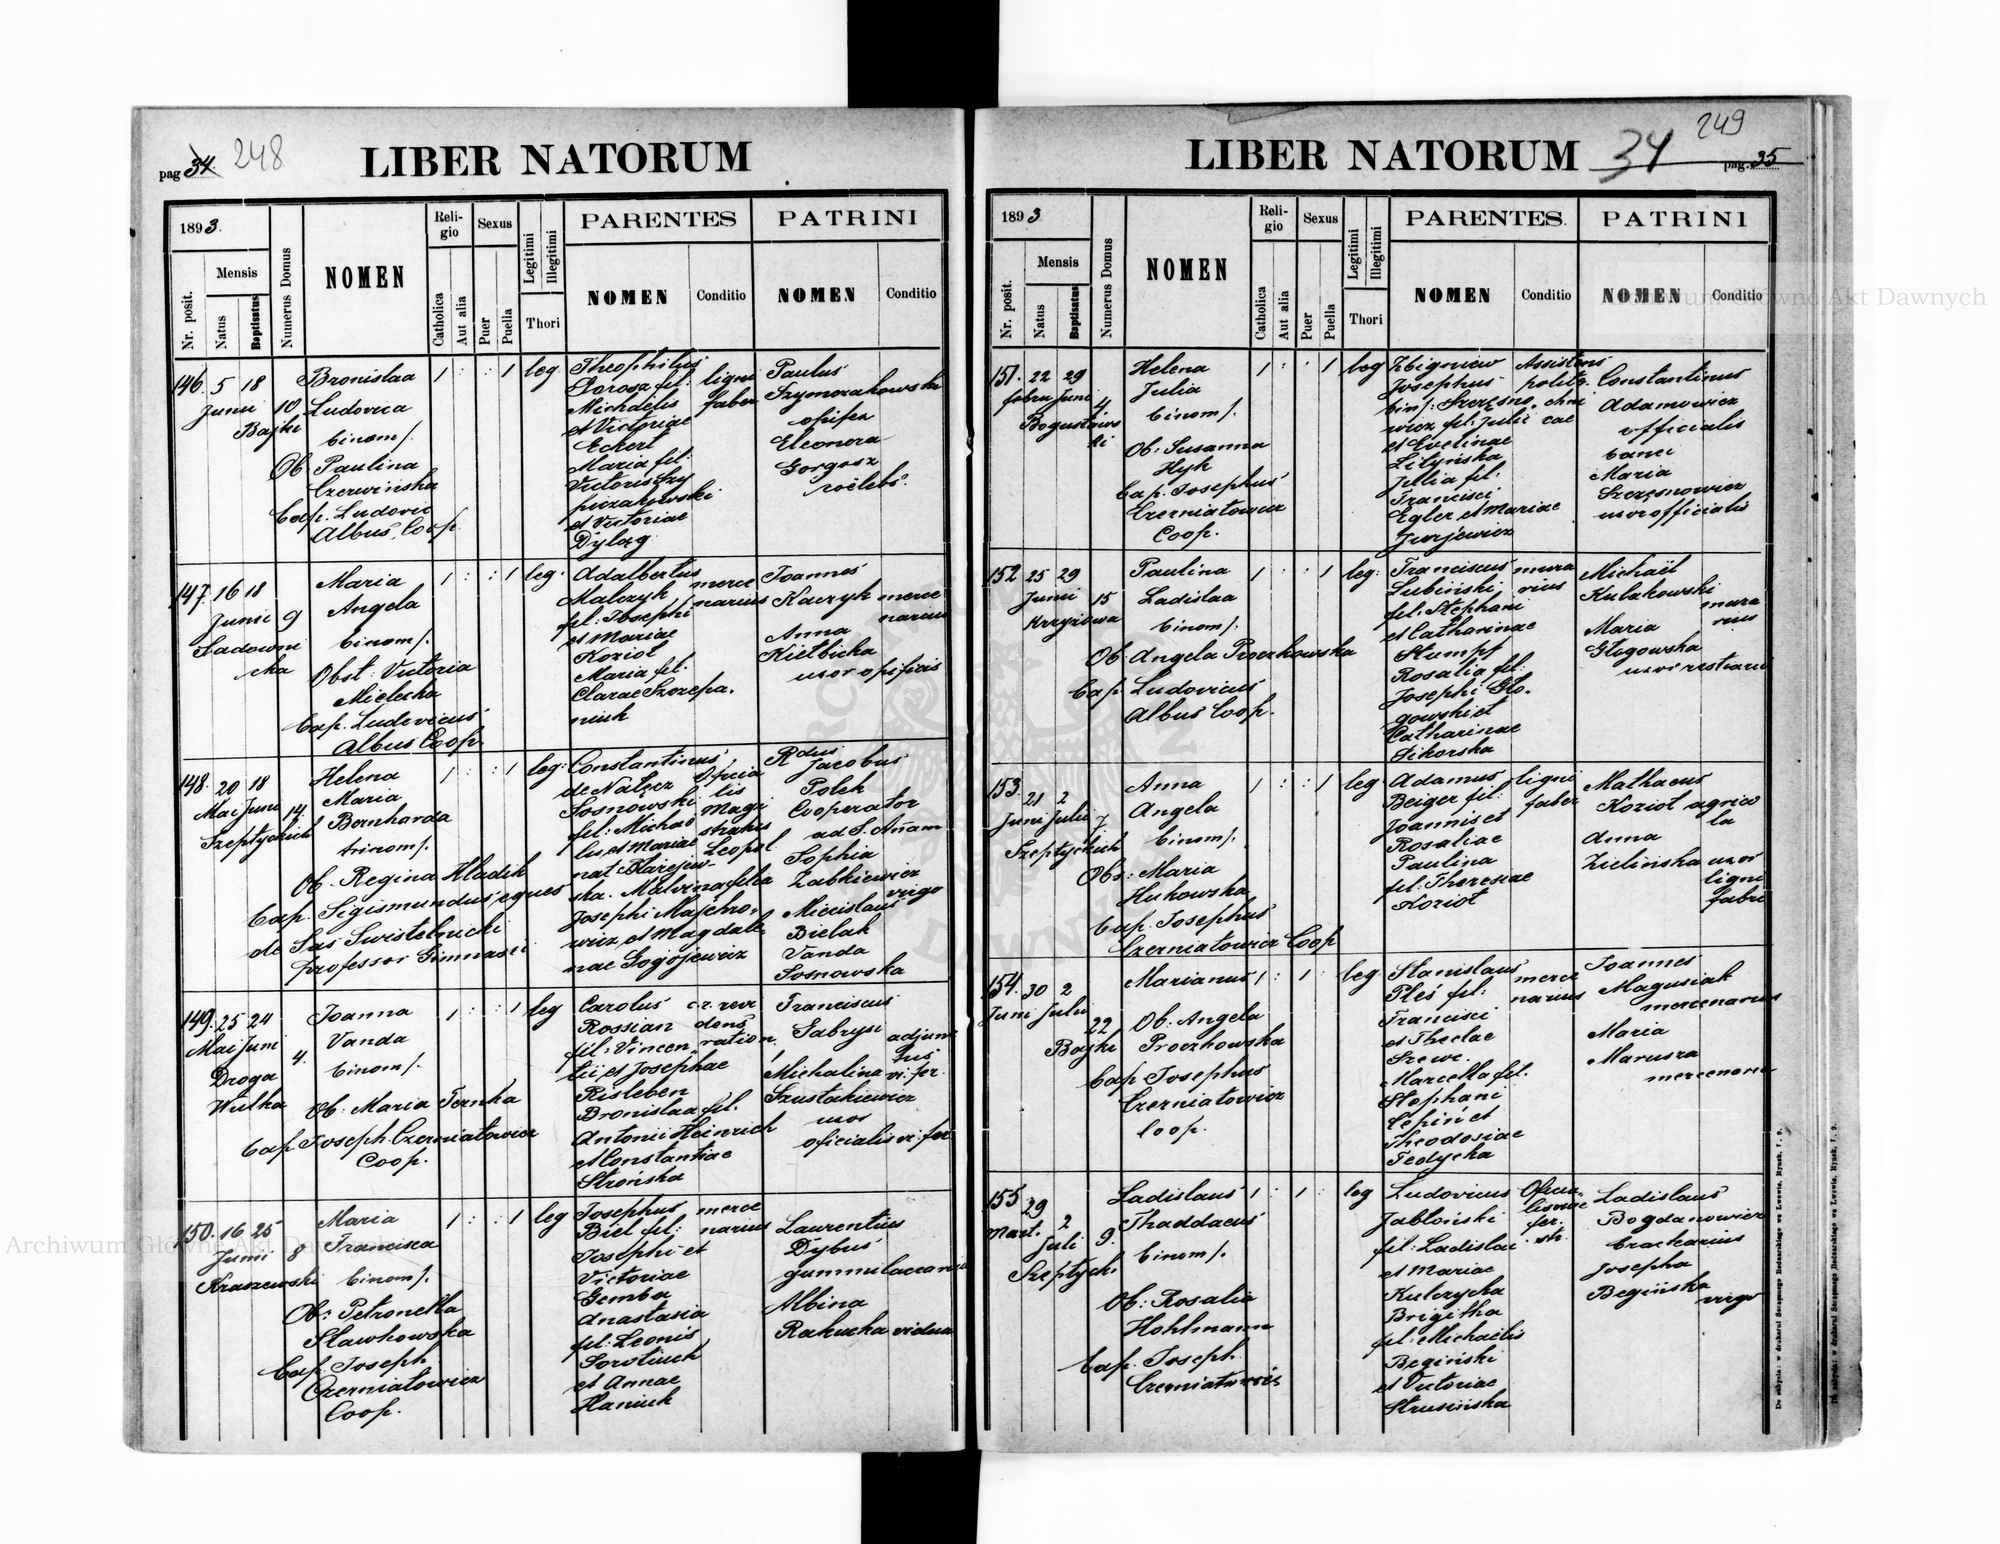 pag 34. 248
LIBER NATORUM
1893.
Nr. posit.
Mensis
Natus
Baptisatus
Numerus Domus
NOMEN
Religio
Catholica
Aut alia
Sexus
Puer
Puella
Legitimi
Illegitimi
Thori
PARENTES
NOMEN
Conditio
PATRINI
NOMEN
Conditio
146. 5 18
Junii 10
Bajki
Bronislaa
Ludovica
binom/.
Ob. Paulina
Czerwińska
Bap. Ludovic
Albus, Coop.
1 : : 1
leg
Theophilus
fil:
Michaelis
et Victoriae
Eckert
Maria fil:
Victoris Szy
et Victoriae
Dyląg
ligni
faber
Paulus
Szymonakowski
opifex
Eleonora
Gorgosz
coelebs.
147. 16 18
Junii 9
Sadowni
cka
Maria
Angela
binom/.
Obst: Victoria
Mielecka
Bap. Ludovicus
Albus Coop.
1 : : 1
leg:
Adalbertus
Malczyk
fil: Josephi
et Mariae
Kozioł
Maria fil:
Clarae Szczepa.
niuk
merce
narius
Joannes
Kaczyk merce
narius
Anna
Kiełbicka
uxor opificis
148. 20 18
Maj Juni 14.
Szeptyckich
Helena
Maria
Bernharda
trinom/.
Ob. Regina Hladik
Bap. Sigismundus eques
de Sas Swistelnicki
professor Gimnasii
1 : : 1
leg:
Constantinus
de Nałęcz
Sosnowski
fil: Michaë
lis, et Mariae
nat Błażejow
ska. Malvina filia
Josephi Majchro,
wicz, et Magdale
nae Gogojewicz
Officia
lis
Magi
stratus
Leopol.
Rdus
Jacobus
Polek
Cooperator
ad S. Annam
Sophia
Żabkiewicz
virgo
Miecislaus
Bielak
Vanda
Sosnowska
149. 25 24
Mai Juni 4.
Droga
Wulka
Joanna
Vanda
binom/.
Ob: Maria Ternka
Bap Joseph. Czerniatowicz
Coop.
1 : : 1
leg
Carolus
Rossian
fil: Vincen
tii, et Josephae
Risleben
Bronislaa fil.
Antonii Heinrich
et Constantiae
Strońska
c. r. revi
dens
ration.
Franciscus
Gabrysi adjunc
tus
Michalina vi. fer.
Szustakiewicz
uxor
oficialis vi: fer
150. 16 25
Junii 8
Kraszewski
Maria
Francisca
binom/.
Ob: Petronella
Sławkowska
Bap. Joseph.
Czerniatowicz
Coop.
1 : : 1
leg
Josephus
Biel fil:
Josephi et
Victoriae
Gemba
Anastasia
fil: Leonis
Sorotiuck
et Annae
Haniuk
merce
narius
Laurentius
Dybus
Albina
Rakucka vidua
249
LIBER NATORUM 34 pag. 35
1893
Nr. posit.
Mensis
Natus
Baptisatus
Numerus Domus
NOMEN
Religio
Catholica
Aut alia
Sexus
Puer
Puella
Legitimi
Illegitimi
Thori
PARENTES.
NOMEN
Conditio
PATRINI
NOMEN
Conditio
151. 22 29
febru Juni 4
Bogusławs
ki
Helena
Julia
binom/.
Ob: Susanna
Hyk
Bap. Josephus
Czerniatowicz
Coop.
1 : : 1
leg
Zbigniew
Josephus
bin/: Szczęsno,
wicz fil: Julii
et Evelinae
Lityńska
Julia fil.
Francisci
Egler et Mariae
Jurjewicz
Assistens
polite.
chni
cae
Constantinus
Adamowicz
officialis
banci
Maria
Szczęsnowicz
uxor officialis
152 25 29
Junii 15
Krzyżowa
Paulina
Ladislaa
binom/.
Ob: Angela Proczkowska
Bap. Ludovicus
Albus Coop.
1 : : 1
leg:
Franciscus
Łubiński
fil: Stephani
et Catharinae
Stumpf
Rosalia fil:
Josephi Gło.
gowski et
Catharinae
Sikorska
mura
rius
Michaël
Kułakowski
mura
rius
Maria
Głogowska
153. 21 2
Juni Julii 7
Szeptyckich
Anna
Angela
binom/.
Obs: Maria
Hukowska
Bap. Josephus
Czerniatowicz Coop
1 : : 1
leg
Adamus
Beiger fil:
Joannis et
Rosaliae
Paulina
fil: Theresiae
Kozioł
ligni
faber
Mathaeus
Kozioł agrico
la
Anna
Zielińska uxor
ligni
fabri
154. 30 2
Juni Julii
22
Bajki
Marianus
Ob: Angela
Proczkowska
Bap Josephus
Czerniatowicz
Coop.
1 : 1 :
leg
Stanislaus
Pleś fil:
Francisci
et Theclae
Szewc.
Marcella fil.
Stephani
Cepiń et
Theodosiae
Fedycka
merce
narius
Joannes
Magusiak
mercenarius
Maria
Marusza
mercenaria
155 29 2
Mart. Juli 9.
Szeptyck:
Ladislaus
Thaddaeus
binom/.
Ob: Rosalia
Hohlmann
Bap. Joseph.
Czerniatowicz
1 : 1 :
leg
Ludovicus
Jabłoński
fil: Ladislai
et Mariae
Kulczycka
Brigitha
fil: Michaëlis
Begiński
et Victoriae
Strusińska
Ladislaus
Bogdanowicz
Josepha
Begińska
virgo
Archiwum Główne Akt Dawnych
Archiwum Główne Akt Dawnych